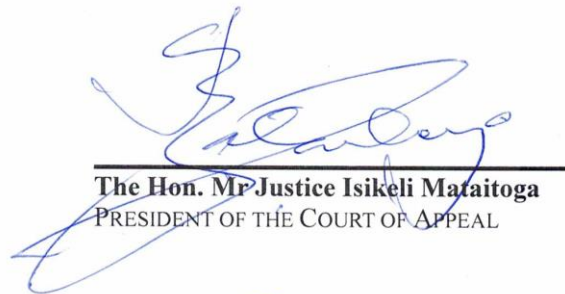 The Hon. Mr Justice Isikeli Mataitoga
PRESIDENT OF THE COURT OF APPEAL